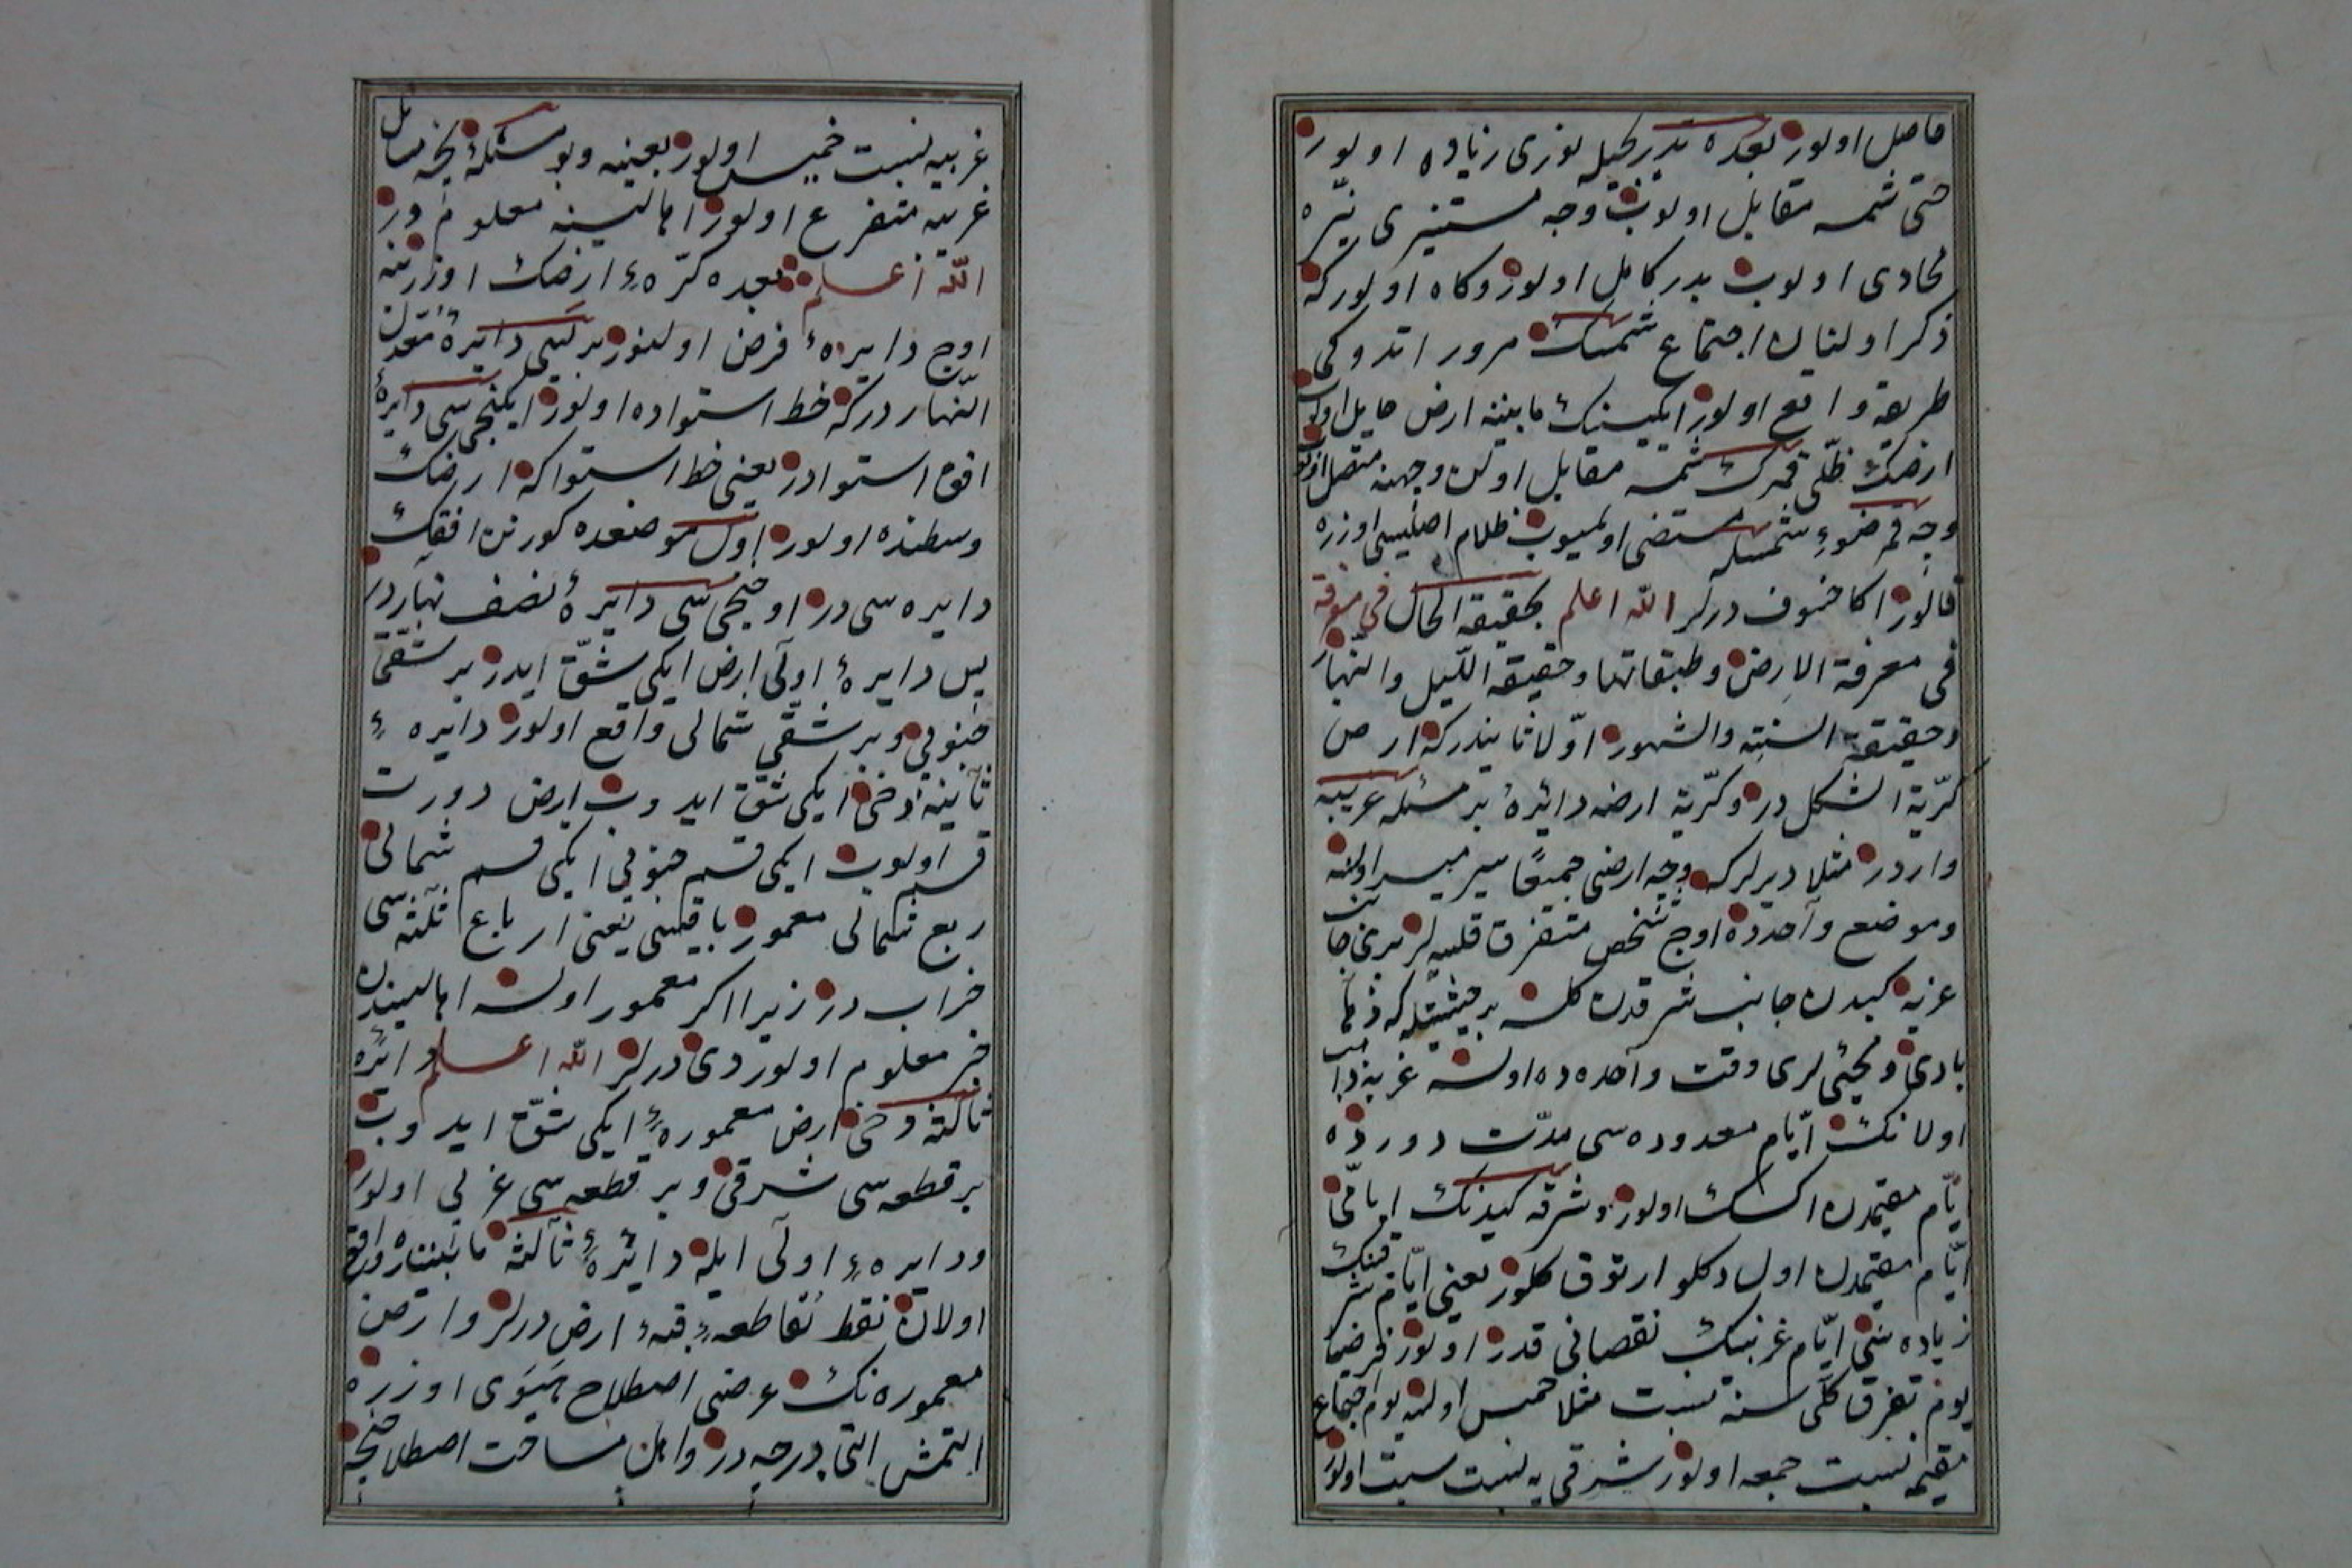 حاصل اولور بعده تدریجیله نوری زیاده اولور
حتی شمسه مقابل اولوب وجه مستنیری نیّره
محاذی اولوب بدر کامل اولور وکاه اولورکه
ذکر اولنان اجتماع شمسك مرور اتدوکی
طریقه واقع اولور ایکیسنك مابیننه ارض حایل اولوب
ارضك ظلّی قمرك شمسه مقابل اولن وجهنه متصل اولوب
وجه قمر ضوء شمسله مستضی اولمیوب ظلام اصلیسی اوزره
قالور اکا خسوف درلر الله اعلم بحقیقة الحال فی معرفة
فی معرفة الارض وطبقاتها وحقیقة اللّیل والنّهار
وحقیقة السنته والشهور اوّلا ثابتدرکه ارض
کرّیة الشکل در وکرّیة ارضه دائر بر مسئله غریبه
واردر مثلا دیرلرکه وجه ارضی جمیعًا سیر میسر اولسه
وموضع واحدده اوج شخص متفرق قلسه لر بری جانب
غربه کیدن جانب شرقدن کلسه بر حیثیتله که ذهاب
بادی و مجیئی لری وقت واحده ده اولسه غربه ذاهب
اولانك ایّام معدوده سی مدّت دورده
ایّام مقیمدن اکسك اولور وشرقه کیدنك ایامی
ایّام مقیمدن اول دکلو ارتوق کلور یعنی ایّام شرقینك
زیاده سی ایّام غربینك نقصانی قدر اولور فرضا
یوم تفرق کلّی سنه نسبت مثلا خمیس اولسه یوم اجتماع
مقیمه نسبت جمعه اولور شرقی یه نسبت سبت اولور
غربیه نسبت خمیس اولور بعینه وبو مسئلهٔ نیجه مسایل
غریبه متفرع اولور اهالیسنه معلوم در
الله اعلم بعده کرّهٔ ارضك اوزرینه
اوج دایره فرض اولنور بریسی دایرهٔ معدّل
النّهار درکه خط استواده اولور ایکنجی سی دایرهٔ
افق استوادر یعنی خط استواکه ارضك
وسطنده اولور اول موضعده کورنن افقك
دایره سی در اوجنجی سی دایرهٔ نصف نهاردر
پس دایرهٔ اولی ارض ایکی شقّ ایدر بر شقی
جنوبی وبر شقّی شمالی واقع اولور دایرهٔ
ثانیه دخی ایکی شقّ ایدوب ارض دورت
قسم اولوب ایکی قسم جنوبی ایکی قسم شمالی
ربع شمالی معمور باقیسی یعنی ارباع ثلثه سی
خراب در زیرا اکر معمور اولسه اهالیسندن
خبر معلوم اولوردی درلر الله اعلم دائرهٔ
ثالثه دخی ارض معمورهٔ ایکی شقّ ایدوب
بر قطعه سی شرقی وبر قطعه سی غربی اولور
ودایرهٔ اولی ایله دائرهٔ ثالثه مابیننده واقع
اولان نقط تقاطعهٔ قبهٔ ارض درلر وارض
معموره نك عرضی اصطلاح هیوی اوزره
التمش التی درجه در واهل مساحت اصطلاحنجه